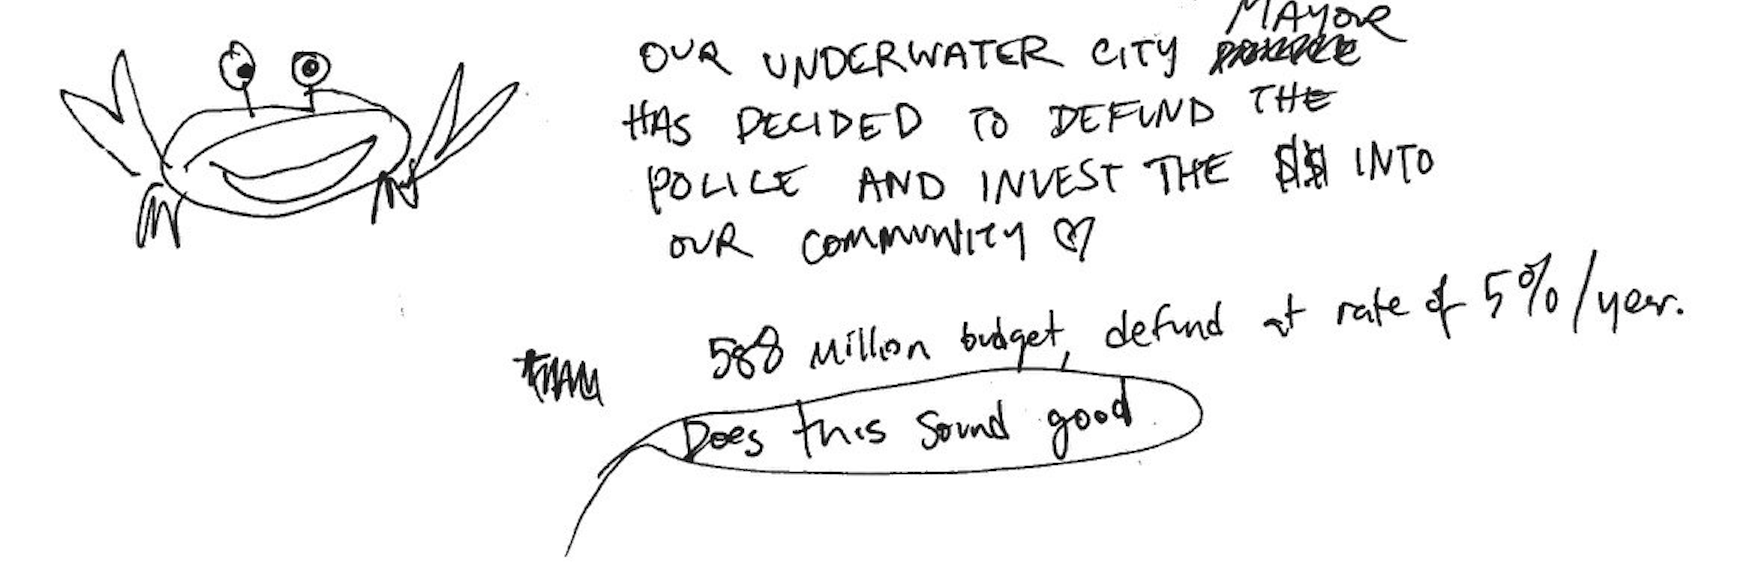 OUR UNDERWATER CITY MAYOR
HAS DECIDED TO DEFUND THE
POLICE AND INVEST THE $$ INTO
OUR COMMUNITY ♡
588 Million budget, defund at rate of 5%/year.
Does this sound good